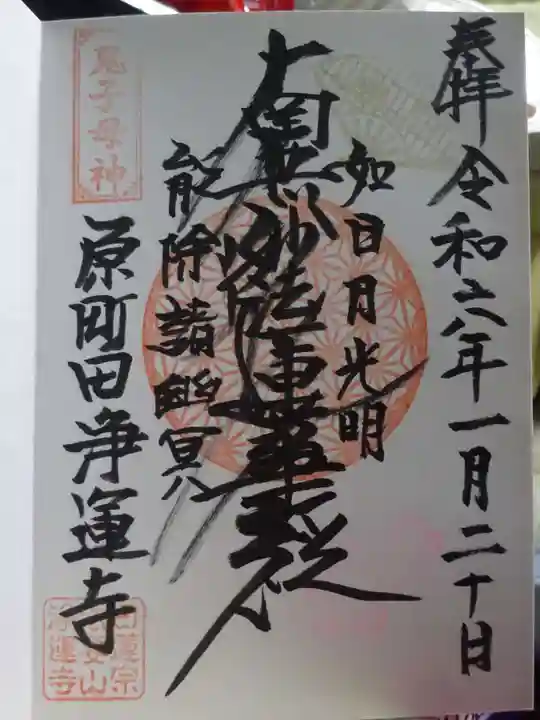 奉拝
令和六年一月二十日
如日月光明
南無妙法蓮華経
能除諸幽冥
鬼子母神
原町田浄運寺
日蓮宗
浄運寺